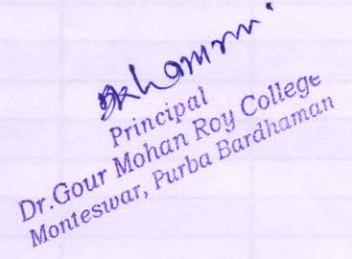 Principal
Dr.Gour Mohan Roy College
Monteswar, Purba Bardhaman